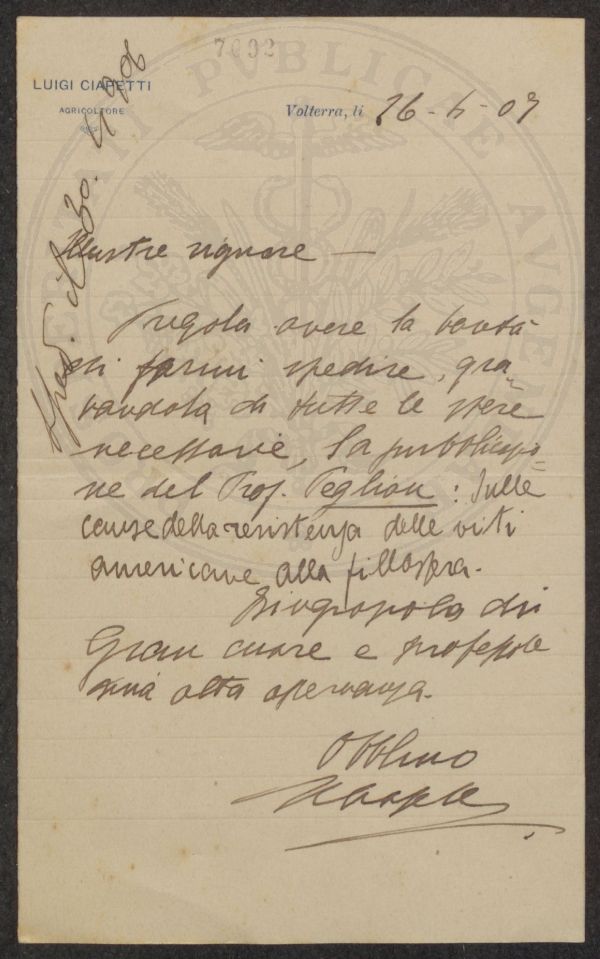 7092
LUIGI CIAPETTI
AGRICOLTORE
Volterra, li 26-6-09
Illustre signore —
Pregola avere la bontà
di farmi spedire, gra-
vandola di tutte le spese
necessarie, la pubblicazio=
ne del Prof. Peglion: Sulle
cause della resistenza delle viti
americane alla fillossera.
Ringraziola di
Gran cuore e professole
mia alta osservanza.
Obblmo
Sped. il 30.
PVBLICAE